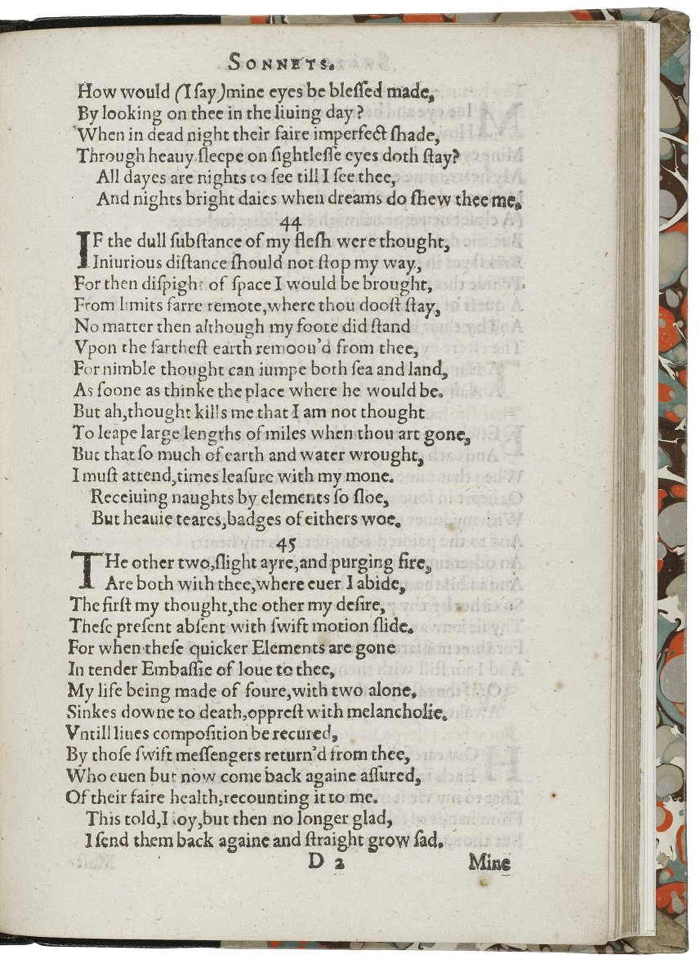 SONNETS.
How would (I ſay)mine eyes be bleſſed made,
By looking on thee in the liuing day?
When in dead night their faire imperfect ſhade,
Through heauy ſleepe on ſightleſſe eyes doth ſtay?
All dayes are nights to ſee till I ſee thee,
And nights bright daies when dreams do ſhew thee me.
44
IF the dull ſubſtance of my fleſh were thought,
Iniurious diſtance ſhould not ſtop my way,
For then diſpight of ſpace I would be brought,
From limits farre remote,where thou dooſt ſtay,
No matter then although my foote did ſtand
Vpon the fartheſt earth remoou'd from thee,
For nimble thought can iumpe both ſea and land,
As ſoone as thinke the place where he would be.
But ah,thought kills me that I am not thought
To leape large lengths of miles when thou art gone,
But that ſo much of earth and water wrought,
I muſt attend,times leaſure with my mone.
Receiuing naughts by elements ſo ſloe,
But heauie teares,badges of eithers woe.
45
THe other two,ſlight ayre,and purging fire,
Are both with thee,where euer I abide,
The firſt my thought,the other my deſire,
Theſe preſent abſent with ſwift motion ſlide.
For when theſe quicker Elements are gone
In tender Embaſſie of loue to thee,
My life being made of foure,with two alone,
Sinkes downe to death,oppreſt with melancholie.
Vntill liues compoſition be recured,
By thoſe ſwift meſſengers return'd from thee,
Who euen but now come back againe aſſured,
Of their faire health,recounting it to me.
This told,I ioy,but then no longer glad,
I ſend them back againe and ſtraight grow ſad.
D 2 Mine